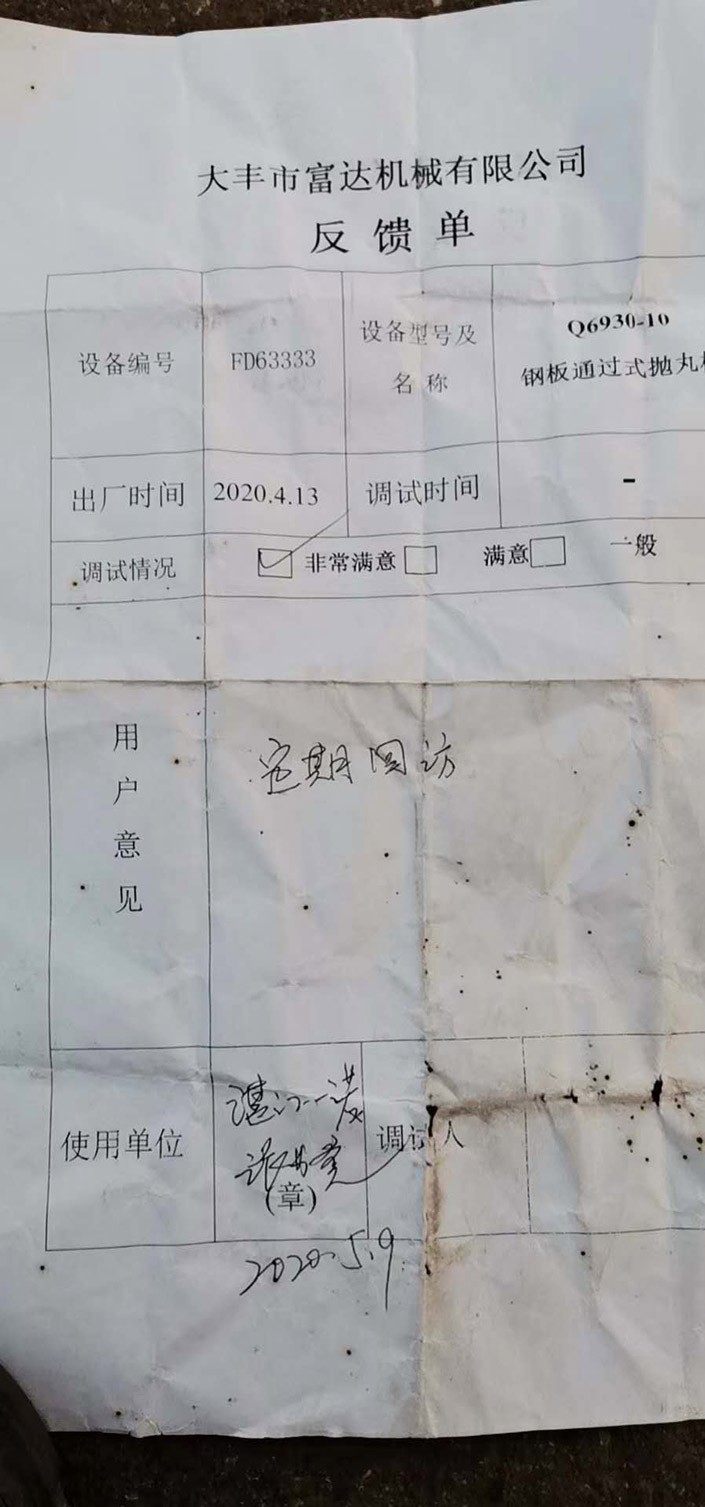 大丰市富达机械有限公司
反馈单
设备编号 FD63333 设备型号及名称 Q6930-10
钢板通过式抛丸机
出厂时间 2020.4.13 调试时间 -
调试情况 非常满意 满意 一般
用户意见 定期回访
使用单位 湛江一诺
(章) 调试人
2020.5.9